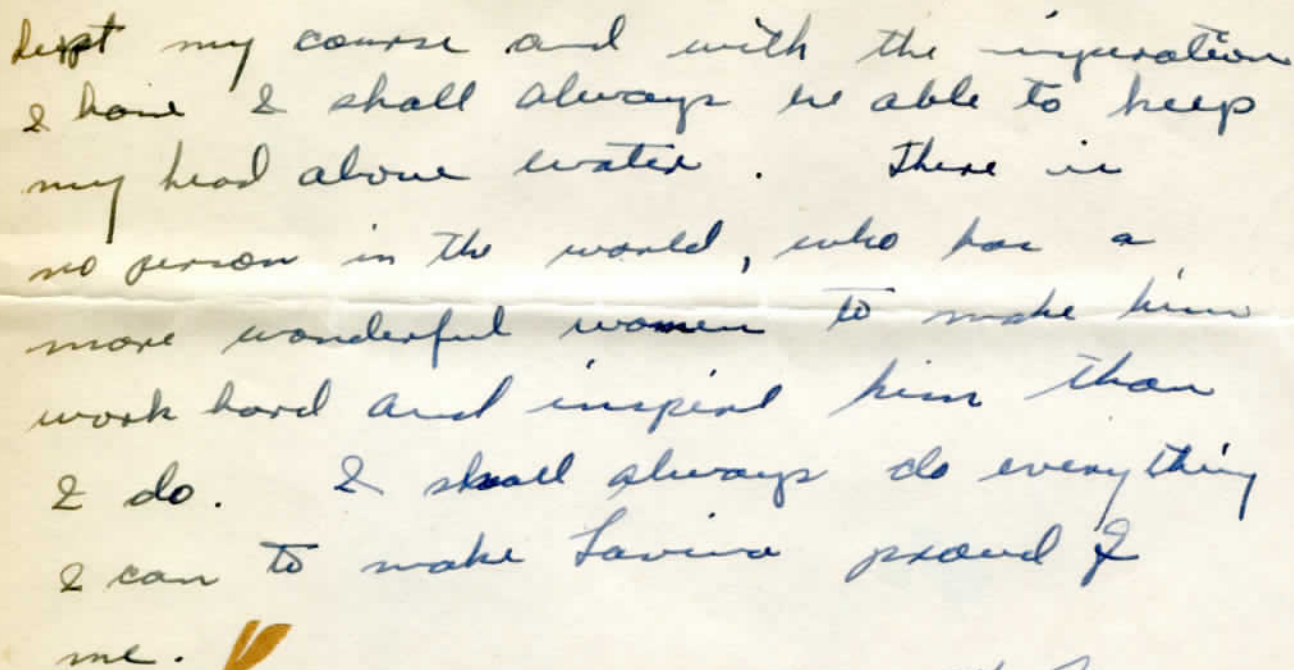 kept my course and with the inspiration
I have I shall always be able to keep
my head above water . There is
no person in the world, who has a
more wonderful women to make him
work hard and inspire him than
I do. I shall always do everything
I can to make Lavina proud of
me.